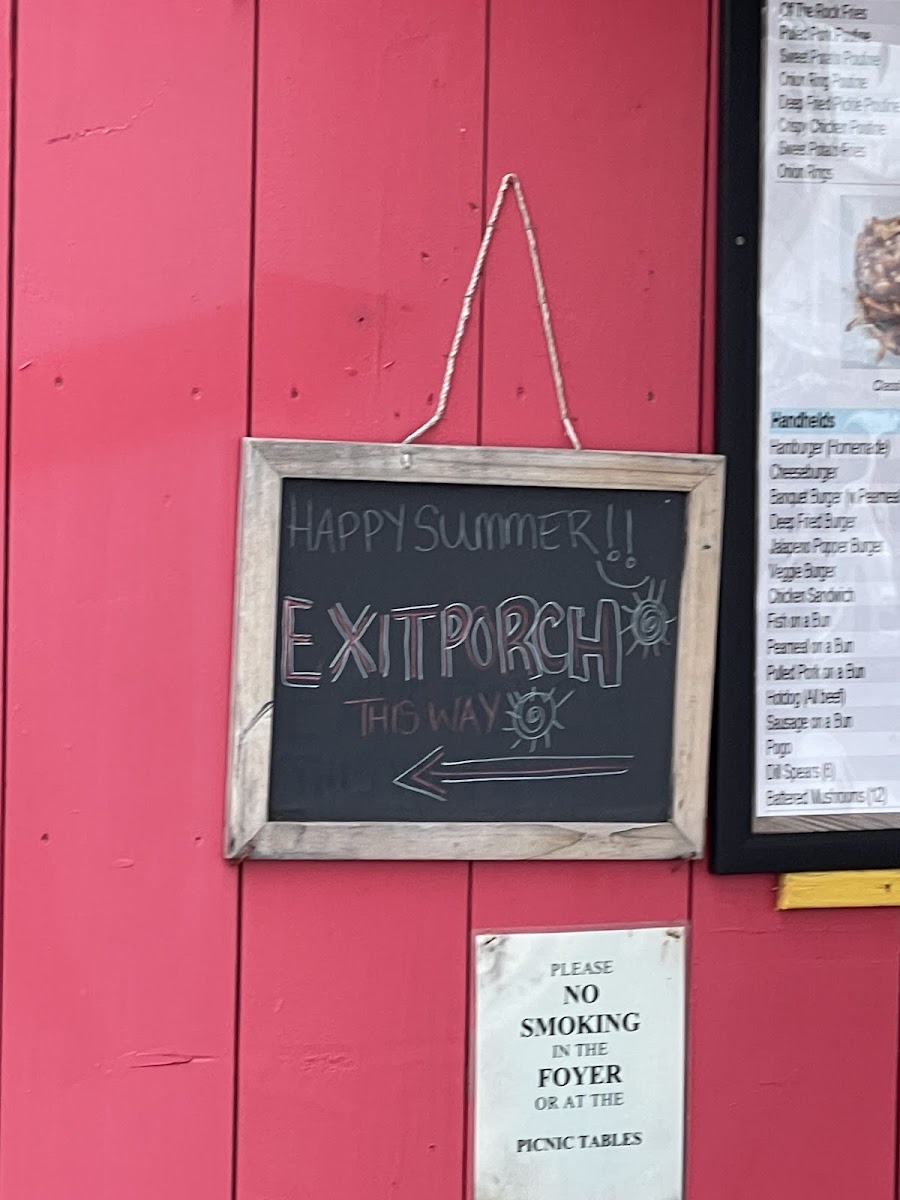 HAPPY SUMMER!!
EXIT PORCH
THIS WAY
PLEASE
NO
SMOKING
IN THE
FOYER
OR AT THE
PICNIC TABLES
Off The Rock Fries
Pulled Pork Poutine
Sweet Potato Poutine
Onion Ring Poutine
Deep Fried Pickle Poutine
Crispy Chicken Poutine
Sweet Potato Fries
Onion Rings
Handhelds
Hamburger (Homemade)
Cheeseburger
Banquet Burger (w. Peameal
Deep Fried Burger
Jalapeno Popper Burger
Veggie Burger
Chicken Sandwich
Fish on a Bun
Peameal on a Bun
Pulled Pork on a Bun
Hotdog (All beef)
Sausage on a Bun
Pogo
Dill Spears (6)
Battered Mushrooms (12)